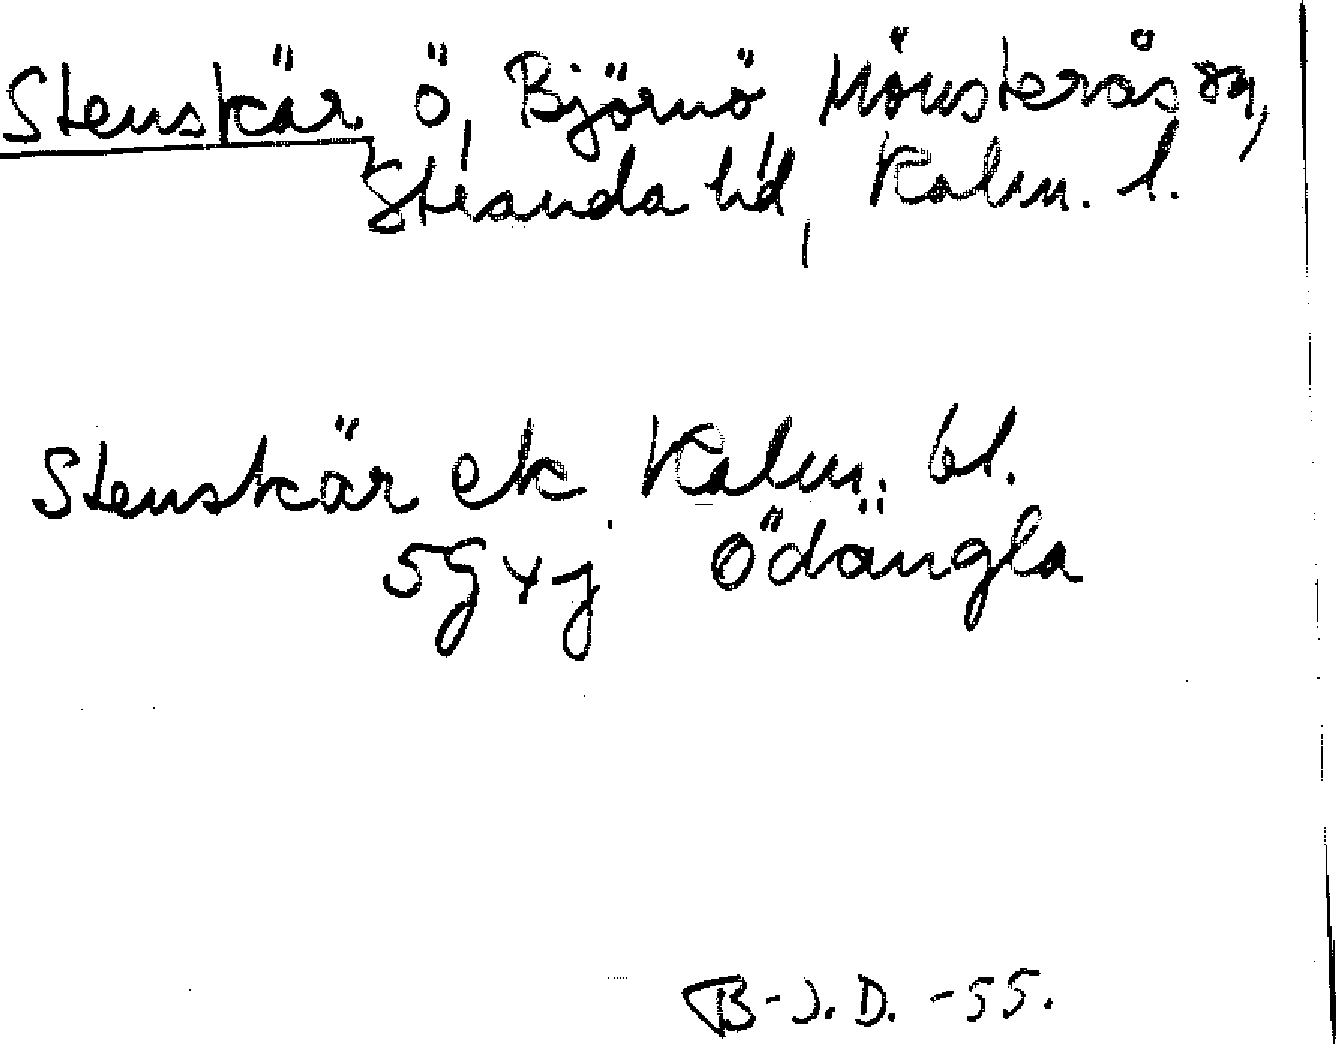 Stenskär ö, Björnö, Mönsterås sn,
Stranda hd, Kalm. l.
Stenskär ek. Kalm. bl.
5G4j Ödängla
B-J.D. -55.